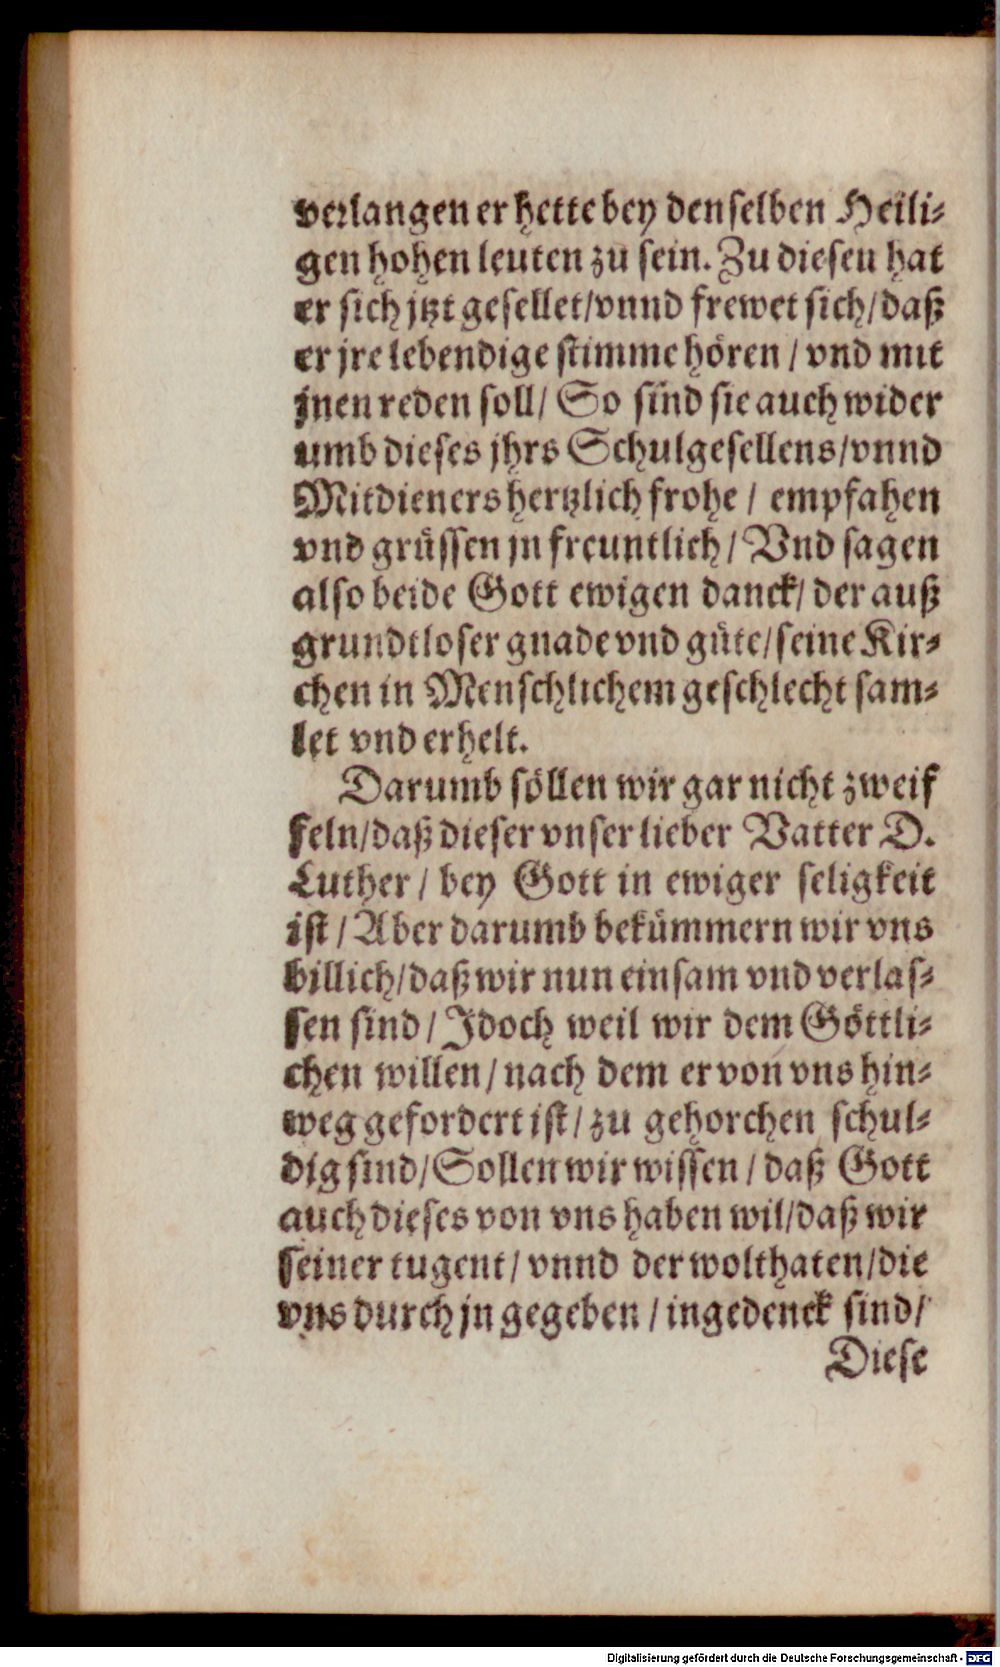 verlangen er hette bey denselben Heili-
gen hohen leuten zu sein. Zu diesen hat
er sich jtzt gesellet/vnnd frewet sich/daß
er jre lebendige stimme hören / vnd mit
jnen reden soll/ So sind sie auch wider
umb dieses jhrs Schulgesellens/vnnd
Mitdieners hertzlich frohe / empfahen
vnd grüssen jn freuntlich / Vnd sagen
also beide Gott ewigen danck/ der auß
grundtloser gnade vnd güte/seine Kir-
chen in Menschlichem geschlecht sam-
let vnd erhelt.
Darumb söllen wir gar nicht zweif
feln/daß dieser vnser lieber Vatter D.
Luther / bey Gott in ewiger seligkeit
ist / Aber darumb bekümmern wir vns
billich/daß wir nun einsam vnd verlas-
sen sind / Jdoch weil wir dem Göttli-
chen willen / nach dem er von vns hin-
weg gefordert ist / zu gehorchen schul-
dig sind/Sollen wir wissen / daß Gott
auch dieses von vns haben wil/daß wir
seiner tugent / vnnd der wolthaten/die
vns durch jn gegeben / ingedenck sind/
Diese
Digitalisierung gefördert durch die Deutsche Forschungsgemeinschaft - DFG